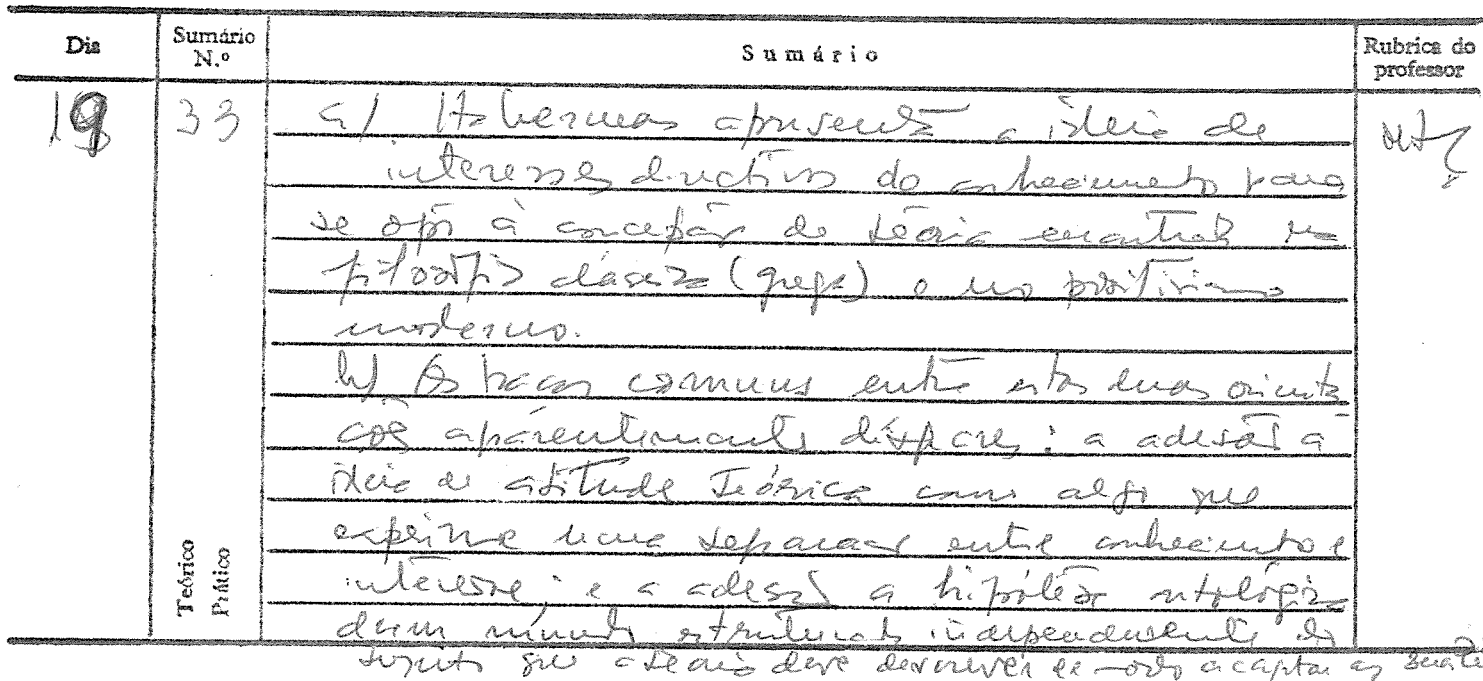 Dia
Sumário N.º
Sumário
Rubrica do professor
19
33
a) Habermas apresenta a ideia de
interesses directivos do conhecimento para
se opôr à concepção de teoria encontrada na
filosofia clássica (grega) e no positivismo
moderno.
b) Os traços comuns entre estas duas orienta
ções aparentemente díspares: a adesão à
ideia de atitude teórica como algo que
exprime uma separação entre conhecimento e
interesse; e a adesão a hipótese ontológica
de um mundo estruturado independentemente do
sujeito que a teoria deve descrever de modo a captar as
Teórico
Prático